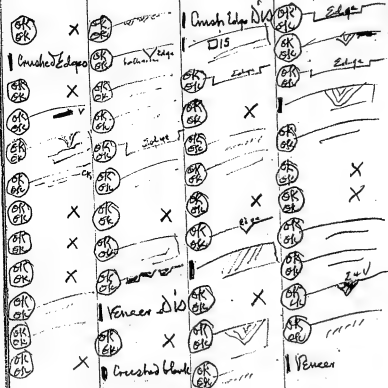 OK
OK X
Crushed Edges
OK
OK X
OK
OK V
OK
OK
OK
OK
OK
OK X
OK
OK X
OK
OK X
OK
OK
OK
OK
OK
OK X
OK
OK
OK
OK Edge
OK
OK
OK
OK
OK
OK Edge
OK
OK
OK
OK X
OK
OK
OK
OK
Veneer Dis
OK
OK X
Crushed blank
Crush Edge Dis
DIS
OK
OK Edge
OK
OK X
OK
OK
OK
OK
OK
OK X
OK
OK Edge
OK
OK X
OK
OK
OK
OK
OK
OK Edge
OK
OK
OK
OK Edge
OK
OK
OK
OK X
OK
OK X
OK
OK
OK
OK
OK
OK
OK
OK
Veneer